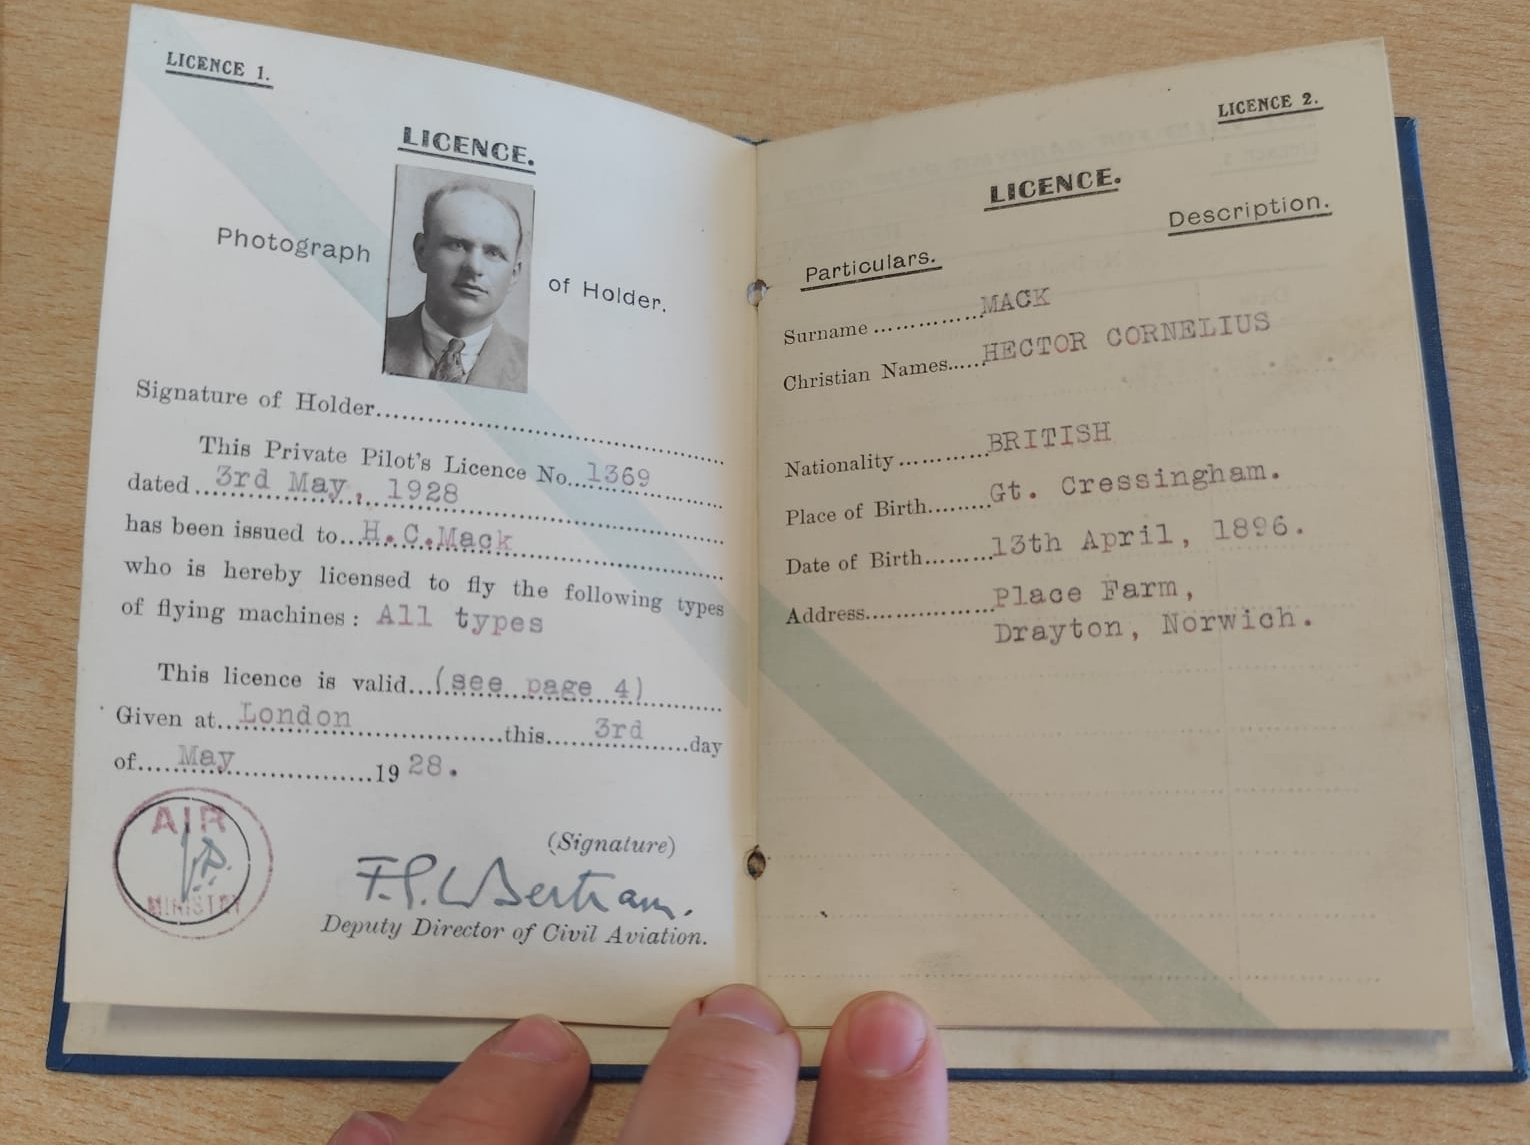 LICENCE 1.
LICENCE.
Photograph of Holder.
Signature of Holder
This Private Pilot's Licence No. 1369
dated 3rd May, 1928
has been issued to H.C.Mack
who is hereby licensed to fly the following types
of flying machines: All types
This licence is valid (see page 4)
Given at London this 3rd day
of May 1928.
AIR
MINISTRY
(Signature)
F.G.L. Bertram.
Deputy Director of Civil Aviation.
LICENCE 2.
LICENCE.
Description.
Particulars.
Surname MACK
Christian Names HECTOR CORNELIUS
Nationality BRITISH
Place of Birth Gt. Cressingham.
Date of Birth 13th April, 1896.
Address Place Farm,
Drayton, Norwich.